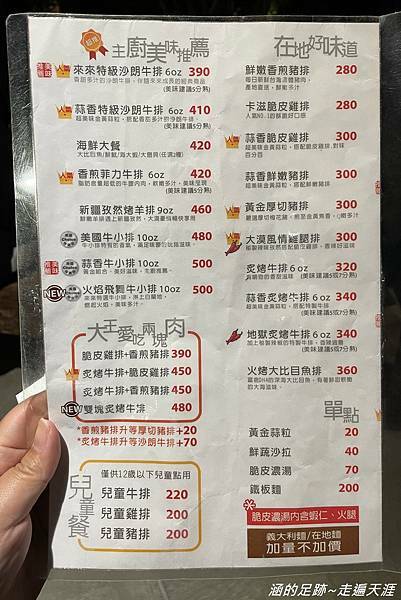 超推!
主廚美味推薦
來來特級沙朗牛排 6oz 390
(美味建議5分熟)
蒜香特級沙朗牛排 6oz 410
(美味建議5分熟)
海鮮大餐 420
香煎菲力牛排 6oz 420
(美味建議5分熟)
新疆孜然烤羊排 9oz 460
美國牛小排 10oz 480
蒜香牛小排 10oz 500
NEW 火焰飛舞牛小排 10oz 500
大王愛兩塊肉
吃
脆皮雞排+香煎豬排 390
炙烤牛排+脆皮雞排 450
炙烤牛排+香煎豬排 450
NEW 雙塊炙烤牛排 480
*香煎豬排升等厚切豬排+20
*炙烤牛排升等沙朗牛排+70
兒童餐
僅供12歲以下兒童點用
兒童牛排 220
兒童雞排 200
兒童豬排 200
在地好味道
鮮嫩香煎豬排 280
卡滋脆皮雞排 280
蒜香脆皮雞排 300
蒜香鮮嫩豬排 300
黃金厚切豬排 300
大漠風情雞腿排 300
炙烤牛排 6oz 320
(美味建議5或7分熟)
蒜香炙烤牛排 6oz 340
(美味建議5或7分熟)
地獄炙烤牛排 6oz 340
(美味建議5或7分熟)
火烤大比目魚排 360
單點
黃金蒜粒 20
鮮蔬沙拉 40
脆皮濃湯 70
鐵板麵 200
脆皮濃湯內含蝦仁、火腿
義大利麵/在地麵
加量不加價
涵的足跡~走遍天涯